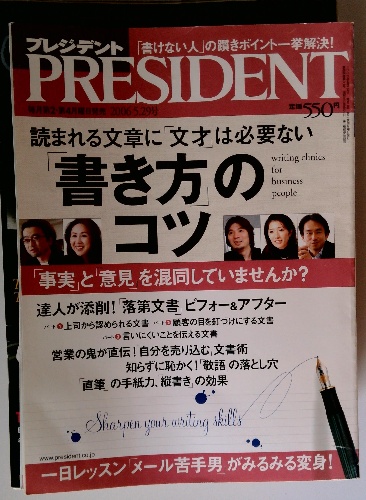 プレジデント
「書けない人」の躓きポイント一挙解決!
PRESIDENT
2006 5.29号
定価550円
読まれる文章に「文才」は必要ない
「書き方」の
コツ
writing clinics
for
business
people
「事実」と「意見」を混同していませんか?
達人が添削!「落第文書」ビフォー&アフター
パート1上司から認められる文書 パート2顧客の目を釘づけにする文書
パート3言いにくいことを伝える文書
営業の鬼が直伝!自分を売り込む「文書術」
知らずに恥かく!「敬語」の落とし穴
「直筆」の手紙力、縦書き」の効果
Sharpen your writing skills
www.president.co.jp
一日レッスン「メール苦手男」がみるみる変身!